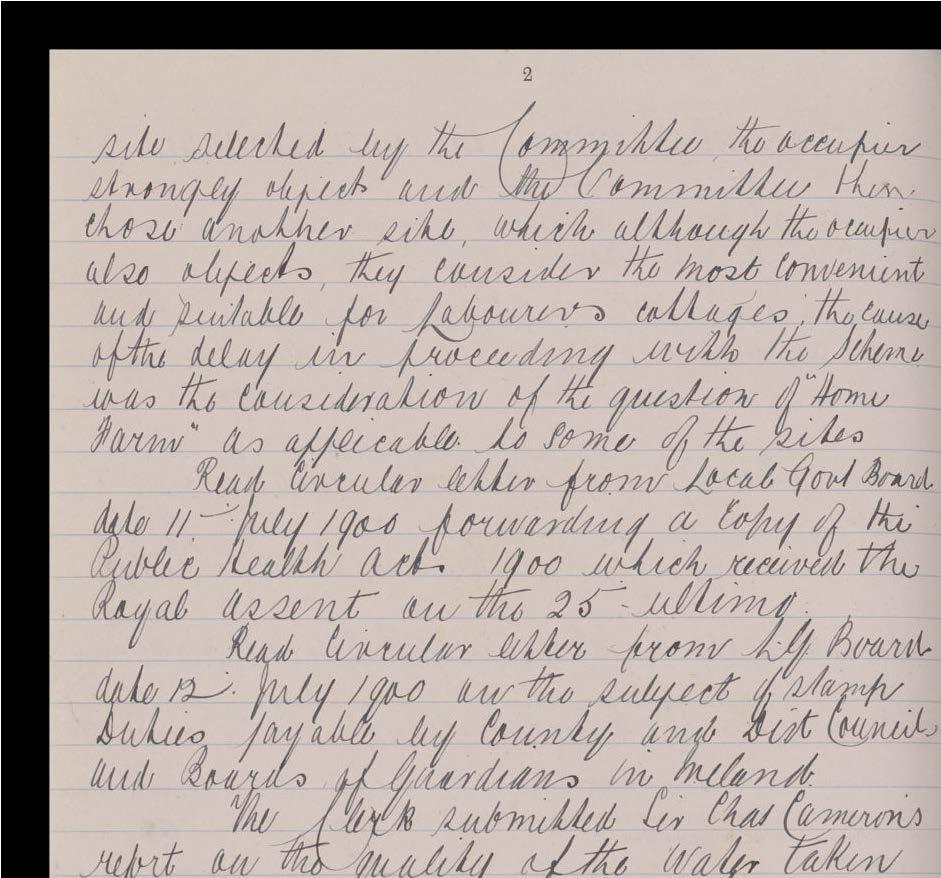 2
site selected by the Committee, the occupier
strongly objects and the Committee then
chose another site, which although the occupier
also objects, they consider the most convenient
and suitable for Labourers cottages, the cause
of the delay in proceeding with the Scheme
was the consideration of the question of "Home
Farm" as applicable to some of the sites
Read Circular letter from Local Govt Board
date 11 July 1900 forwarding a Copy of the
Public Health Act 1900 which received the
Royal Assent on the 25 ultimo.
Read Circular letter from L.G. Board
date 12. July 1900 on the subject of stamp
Duties payable by County and Dist Councils
and Boards of Guardians in Ireland.
The Clerk submitted Sir Chas Camerons
report on the quality of the Water taken